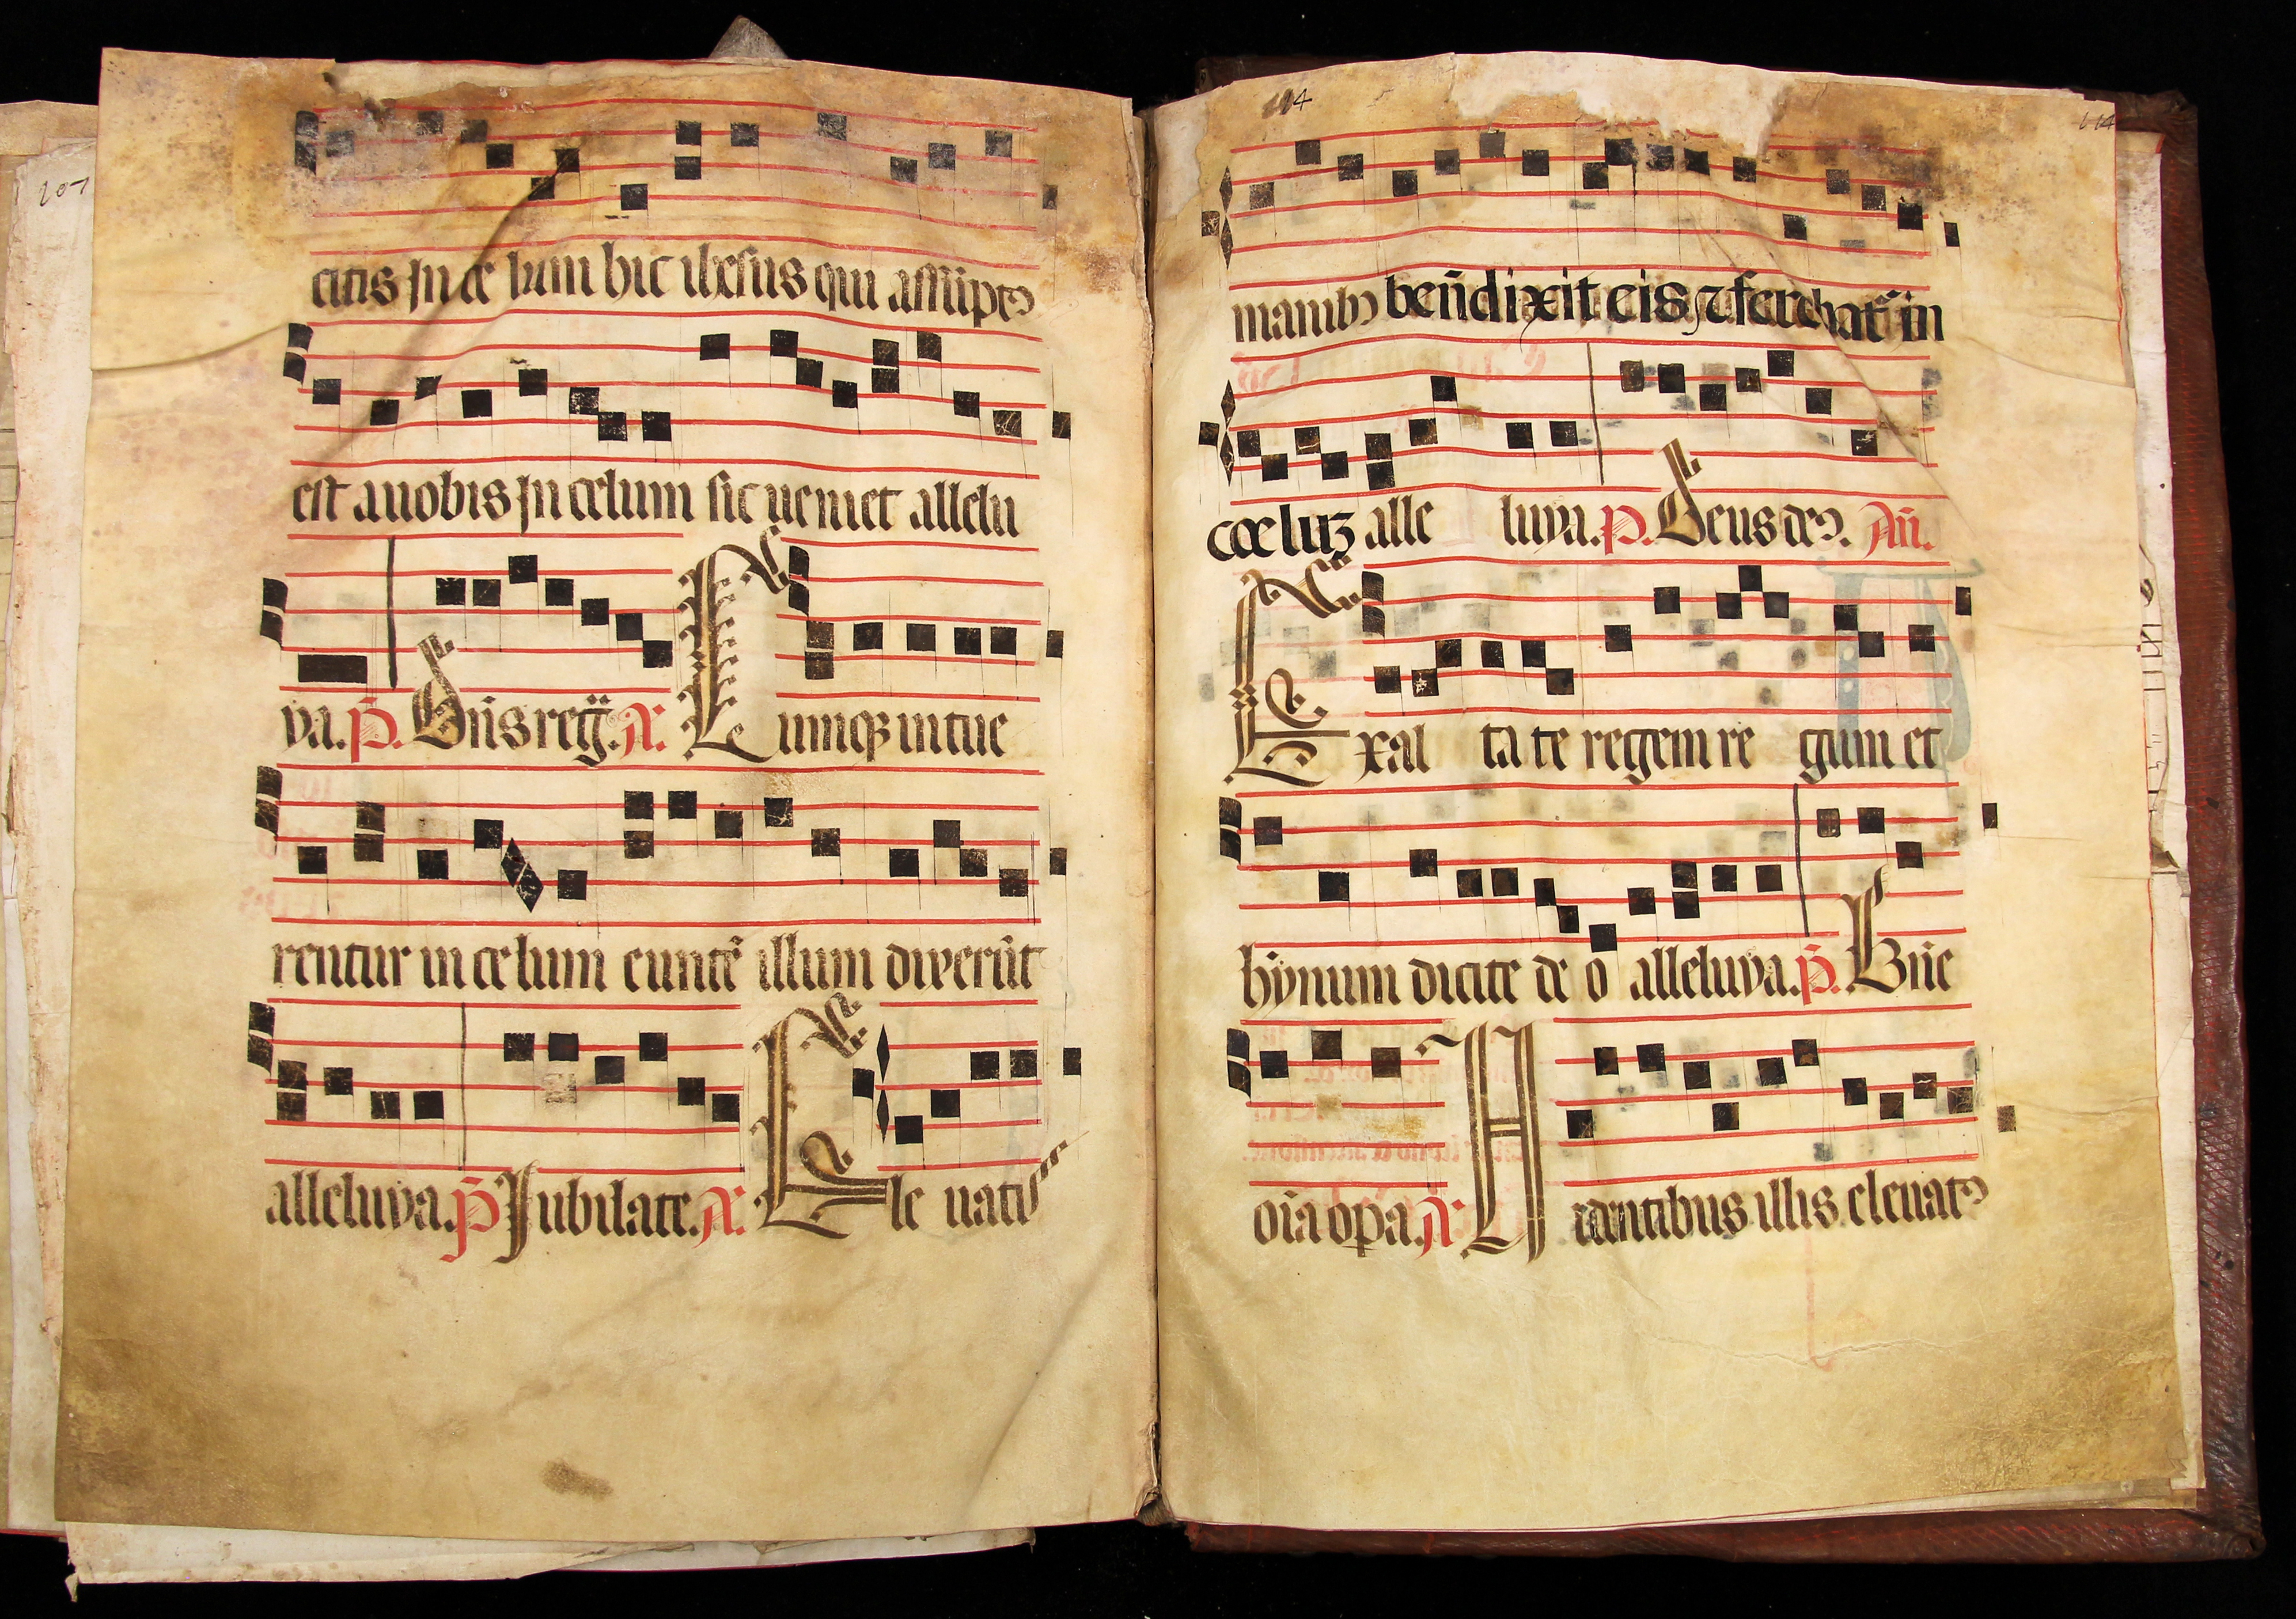 107
citis In ce lum hic ihesus qui assūptꝰ
est a uobis In celum sic ueniet allelu
ya. p̄. Dn̄s reg̃. A. Cumq3 intue
rentur in celum eunte᷑ illum dixerūt
alleluya. p̄ Iubilate. A. Ele uatis
114
114
manibꝰ ben̄dixit eis ⁊ ferebat᷑ in
cœluʒ alle luya. p. Deus deꝰ. An̄.
Exal ta te regem re gum et
hymnum dicite de o alleluya. p̄. Bn̄e
oīa opa. A. Uidentibus illis eleuatꝰ